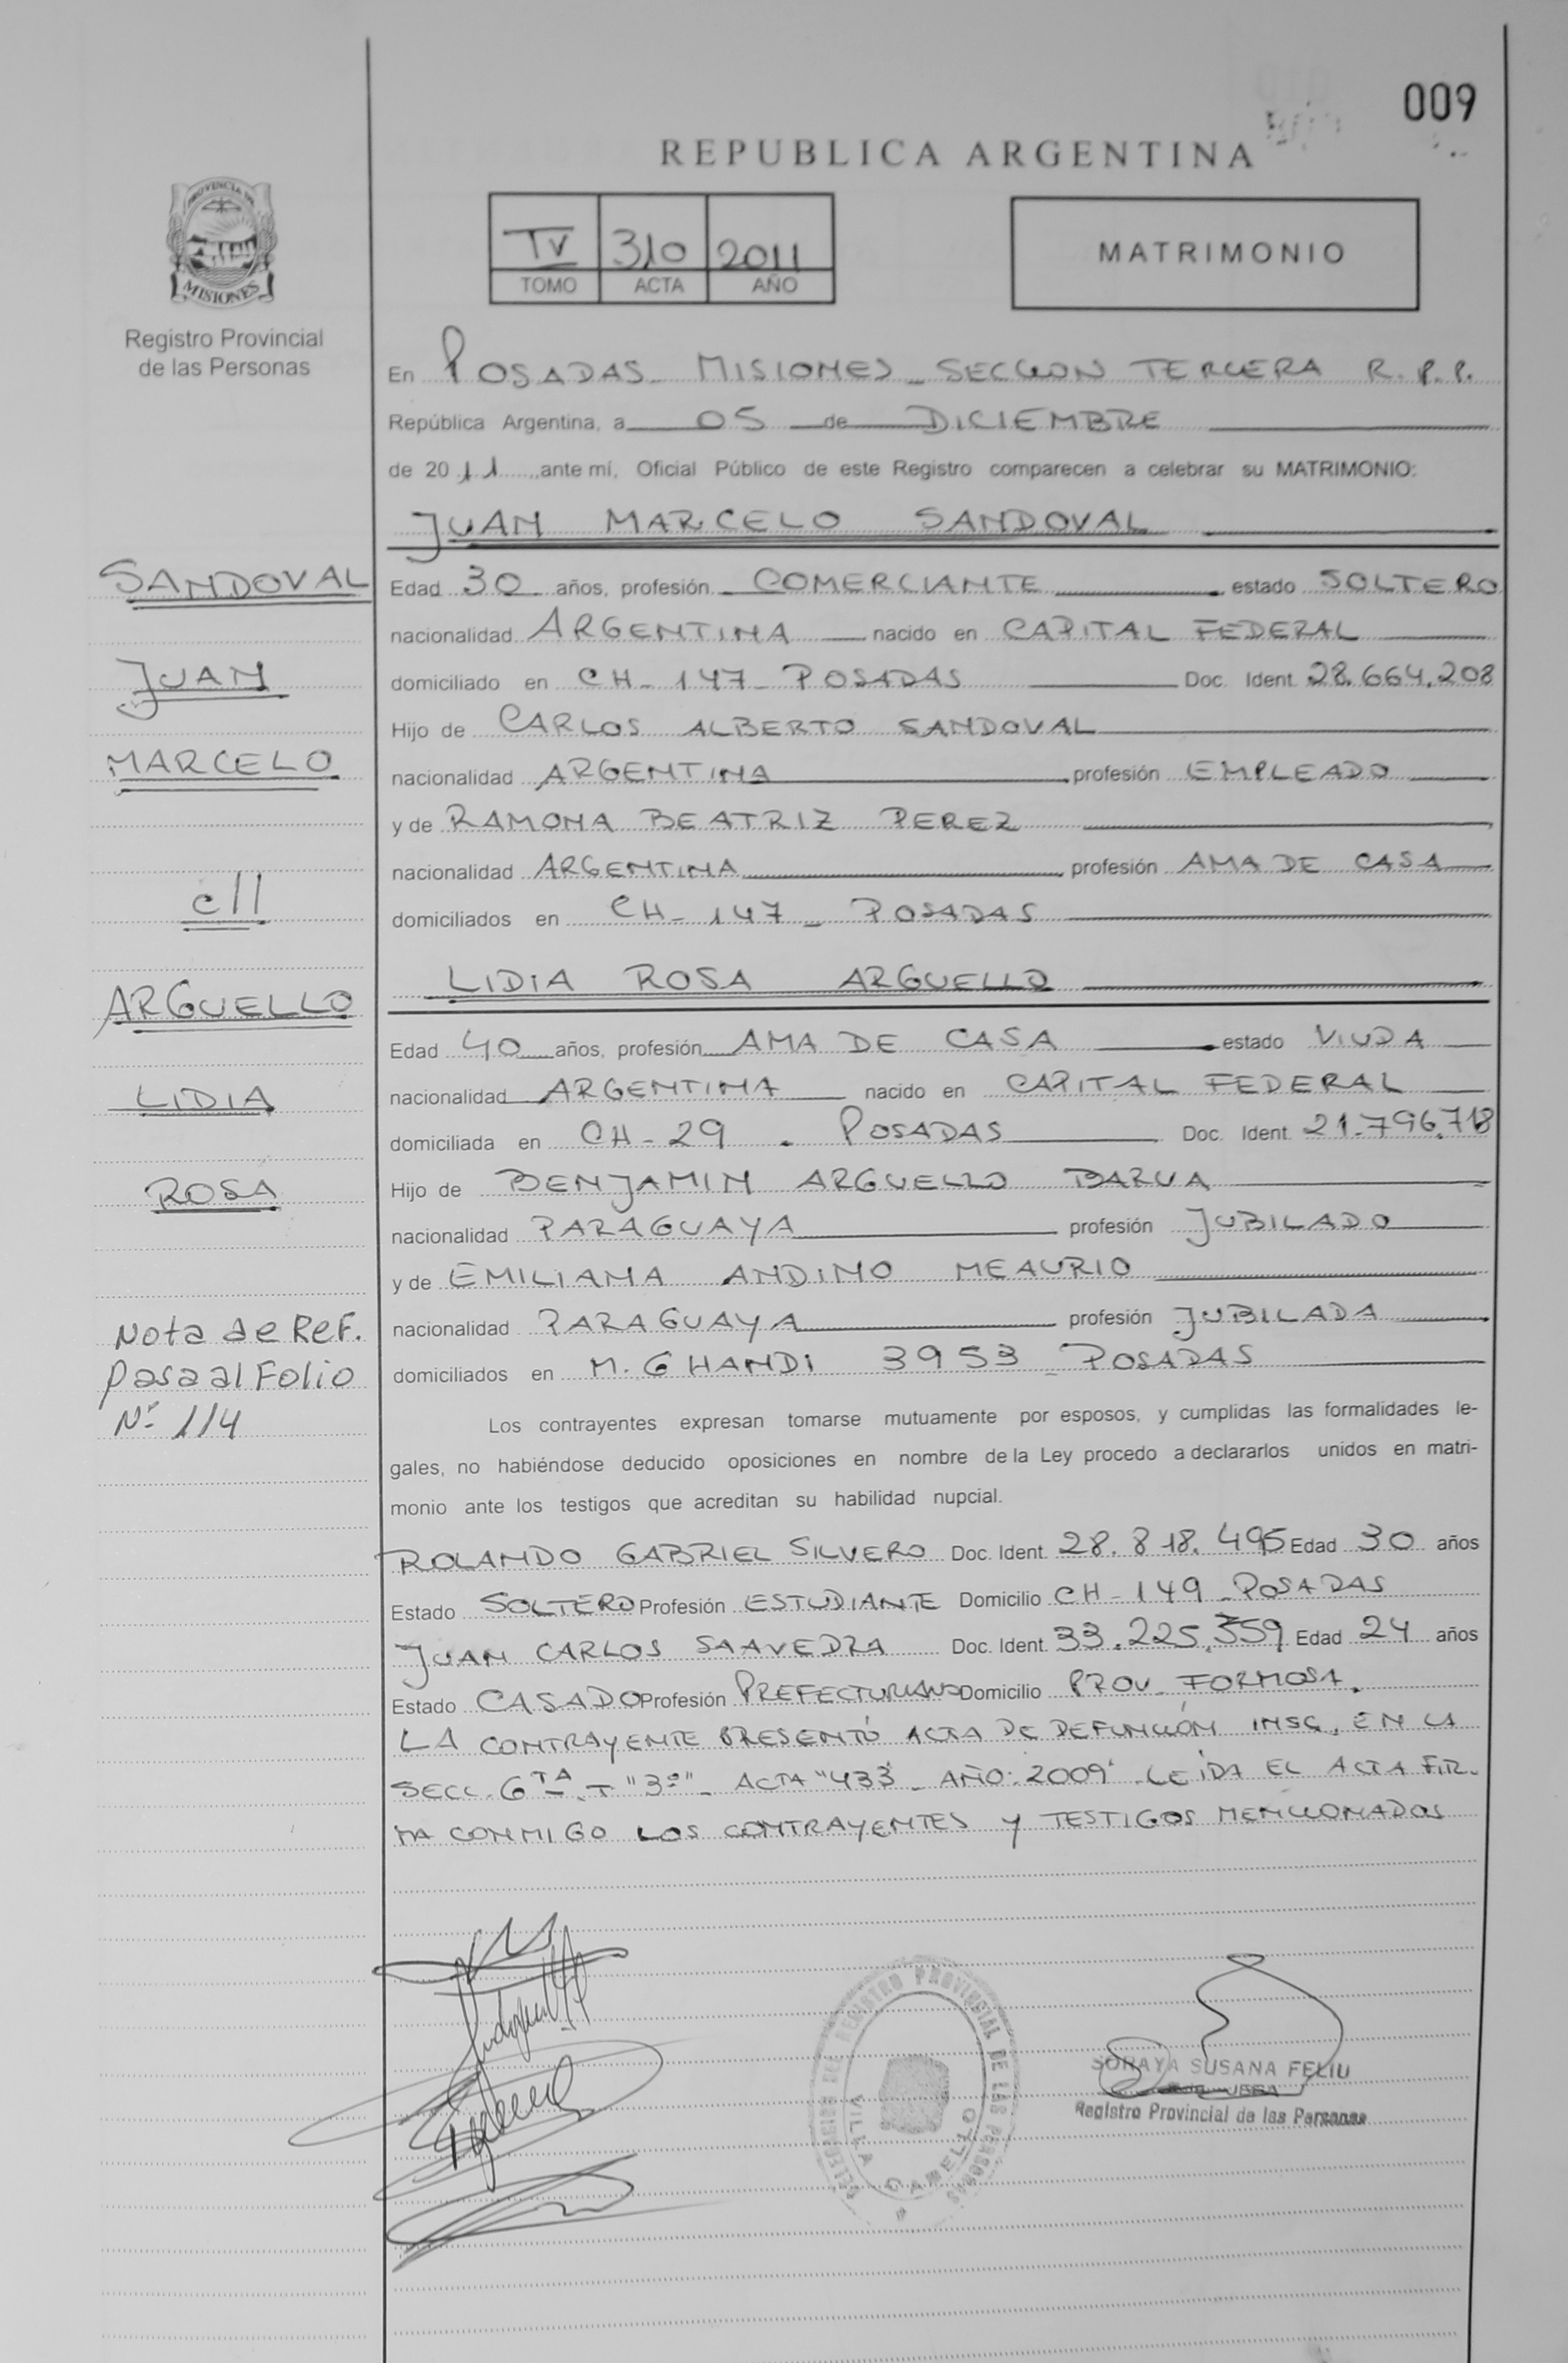 009
REPUBLICA ARGENTINA
PROVINCIA DE
MISIONES
Registro Provincial
de las Personas
TV 310 2011
TOMO ACTA AÑO
MATRIMONIO
En POSADAS - MISIONES - SECCION TERCERA R.P.P.
República Argentina, a 05 de DICIEMBRE
de 2011, ante mí, Oficial Público de este Registro comparecen a celebrar su MATRIMONIO:
JUAN MARCELO SANDOVAL
SANDOVAL
JUAN
MARCELO
c//
ARGUELLO
LIDIA
ROSA
Nota de Ref.
Pasa al Folio
Nº 114
Edad 30 años, profesión COMERCIANTE estado SOLTERO
nacionalidad ARGENTINA nacido en CAPITAL FEDERAL
domiciliado en CH - 147 - POSADAS Doc. Ident. 28.664.208
Hijo de CARLOS ALBERTO SANDOVAL
nacionalidad ARGENTINA profesión EMPLEADO
y de RAMONA BEATRIZ PEREZ
nacionalidad ARGENTINA profesión AMA DE CASA
domiciliados en CH - 147 - POSADAS
LIDIA ROSA ARGUELLO
Edad 40 años, profesión AMA DE CASA estado VIUDA
nacionalidad ARGENTINA nacido en CAPITAL FEDERAL
domiciliada en CH - 29 - POSADAS Doc. Ident. 21.796.718
Hijo de BENJAMIN ARGUELLO BARUA
nacionalidad PARAGUAYA profesión JUBILADO
y de EMILIANA ANDINO MEAURIO
nacionalidad PARAGUAYA profesión JUBILADA
domiciliados en M. GHANDI 3953 - POSADAS
Los contrayentes expresan tomarse mutuamente por esposos, y cumplidas las formalidades le-
gales, no habiéndose deducido oposiciones en nombre de la Ley procedo a declararlos unidos en matri-
monio ante los testigos que acreditan su habilidad nupcial.
ROLANDO GABRIEL SILVERO Doc. Ident. 28.818.495 Edad 30 años
Estado SOLTERO Profesión ESTUDIANTE Domicilio CH - 149 - POSADAS
JUAN CARLOS SAAVEDRA Doc. Ident. 33.225.359 Edad 24 años
Estado CASADO Profesión PREFECTURIANO Domicilio PROV. FORMOSA.
LA CONTRAYENTE PRESENTÓ ACTA DE DEFUNCIÓN INSC. EN LA
SECC. 6TA - T "3º" - ACTA "433" - AÑO: 2009" LEIDA EL ACTA FIR-
MA CONMIGO LOS CONTRAYENTES Y TESTIGOS MENCIONADOS
DELEGACION DEL REGISTRO PROVINCIAL DE LAS PERSONAS
VILLA CABELLO
SORAYA SUSANA FELIU
Registro Provincial de las Personas